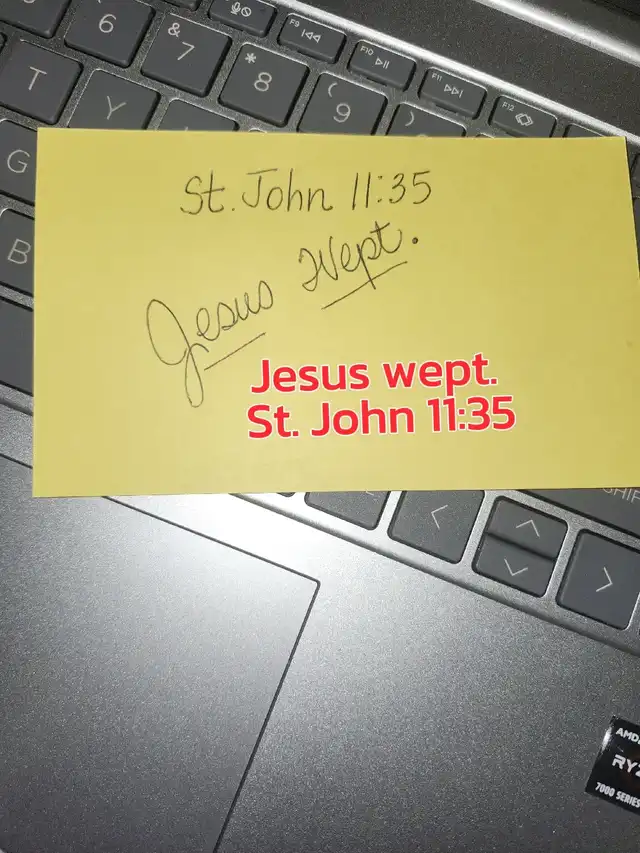 6
&
7
*
8
(
9
)
F9
F10
F11
F12
T
Y
G
B
St. John 11:35
Jesus Wept.
Jesus wept.
St. John 11:35
AMD
RYZ
7000 SERIES